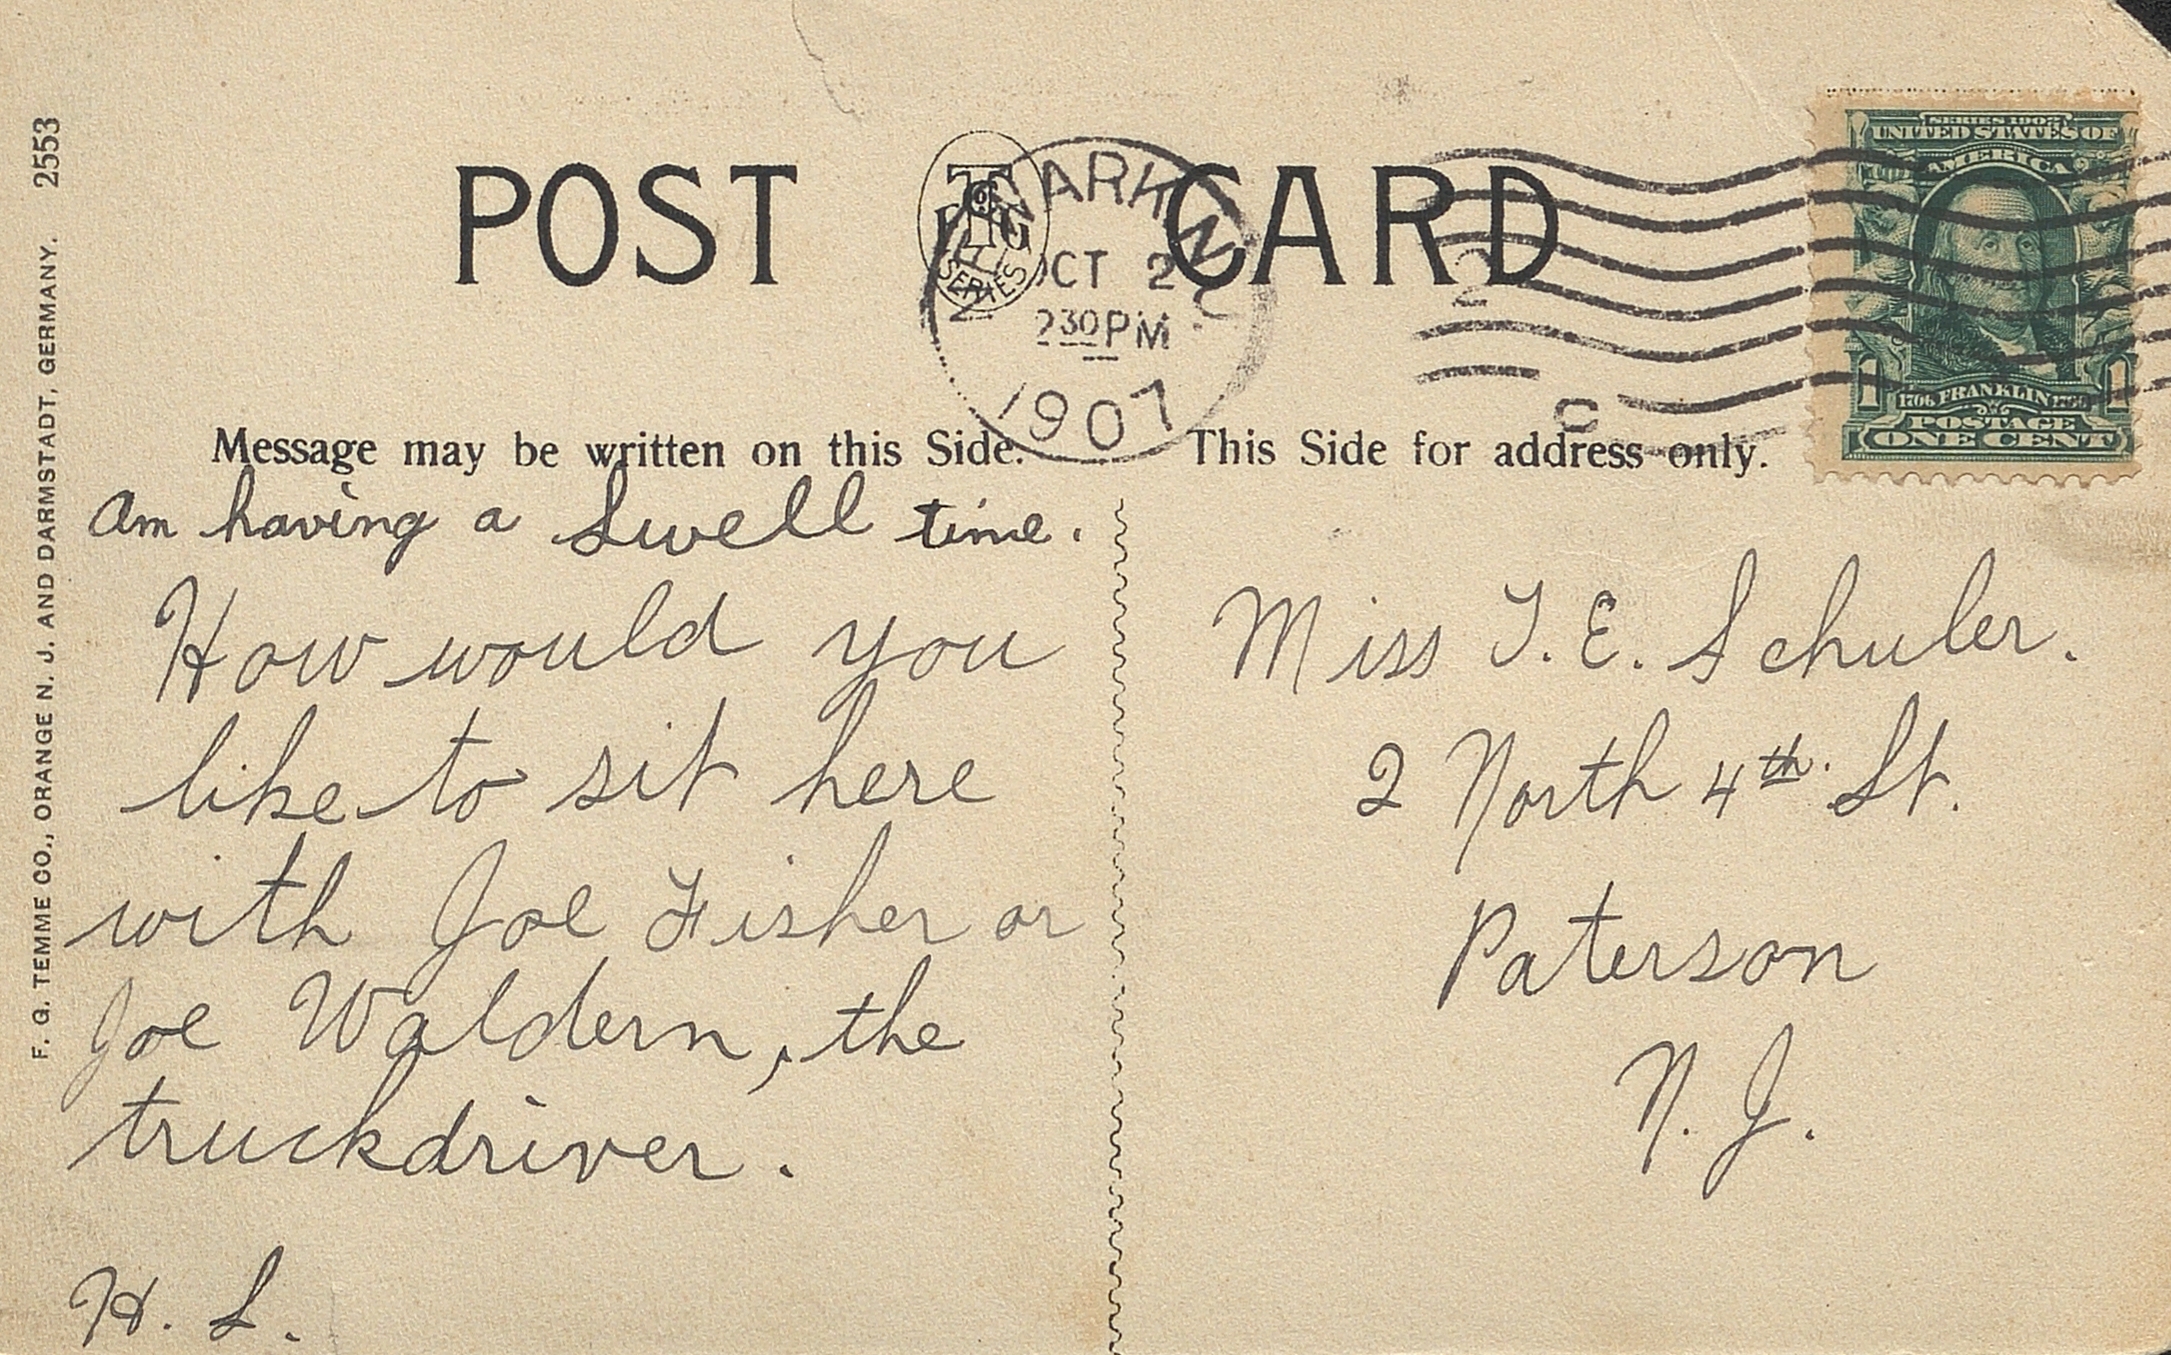 F. G. TEMME CO., ORANGE N. J. AND DARMSTADT, GERMANY. 2553
POST CARD
SERIES
NEWARK, N.J.
OCT 2
230PM
1907
2
C
SERIES 1902
UNITED STATES OF
AMERICA
1706 FRANKLIN 1790
POSTAGE
1 ONE CENT 1
Message may be written on this Side.
am having a Swell time.
How would you
like to sit here
with Joe Fisher or
Joe Waldern, the
truckdriver.
H. S.
This Side for address only.
Miss T. E. Schuler.
2 North 4th. St.
Paterson
N. J.